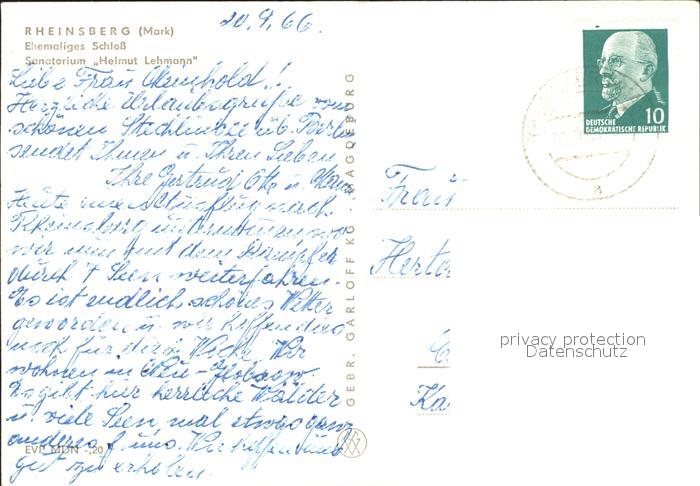 20.9.66.
RHEINSBERG (Mark)
Ehemaliges Schloß
Sanatorium „Helmut Lehmann"
Liebe Frau
Herzliche Urlaubsgrüße vom
schönen Stechlinsee üb.
sendet Ihnen u. Ihren Lieben
Ihre Gertrud Otto u.
Heute
Rheinsberg unternommen wo
wir nun mit dem Dampfer
durch 7 Seen weiterfahren.
Es ist endlich schönes Wetter
geworden u. wir hoffen dies
noch für diese Woche. Wir
wohnen in Neu-Globsow.
Es gibt hier herrliche Wälder
u. viele Seen, mal etwas ganz
anderes f. uns. Wir hoffen uns
gut zu erholen.
EVP MDN -,20
GEBR. GARLOFF KG · MAGDEBURG
10
DEUTSCHE
DEMOKRATISCHE REPUBLIK
a
Frau
Herto
Ka
privacy protection
Datenschutz